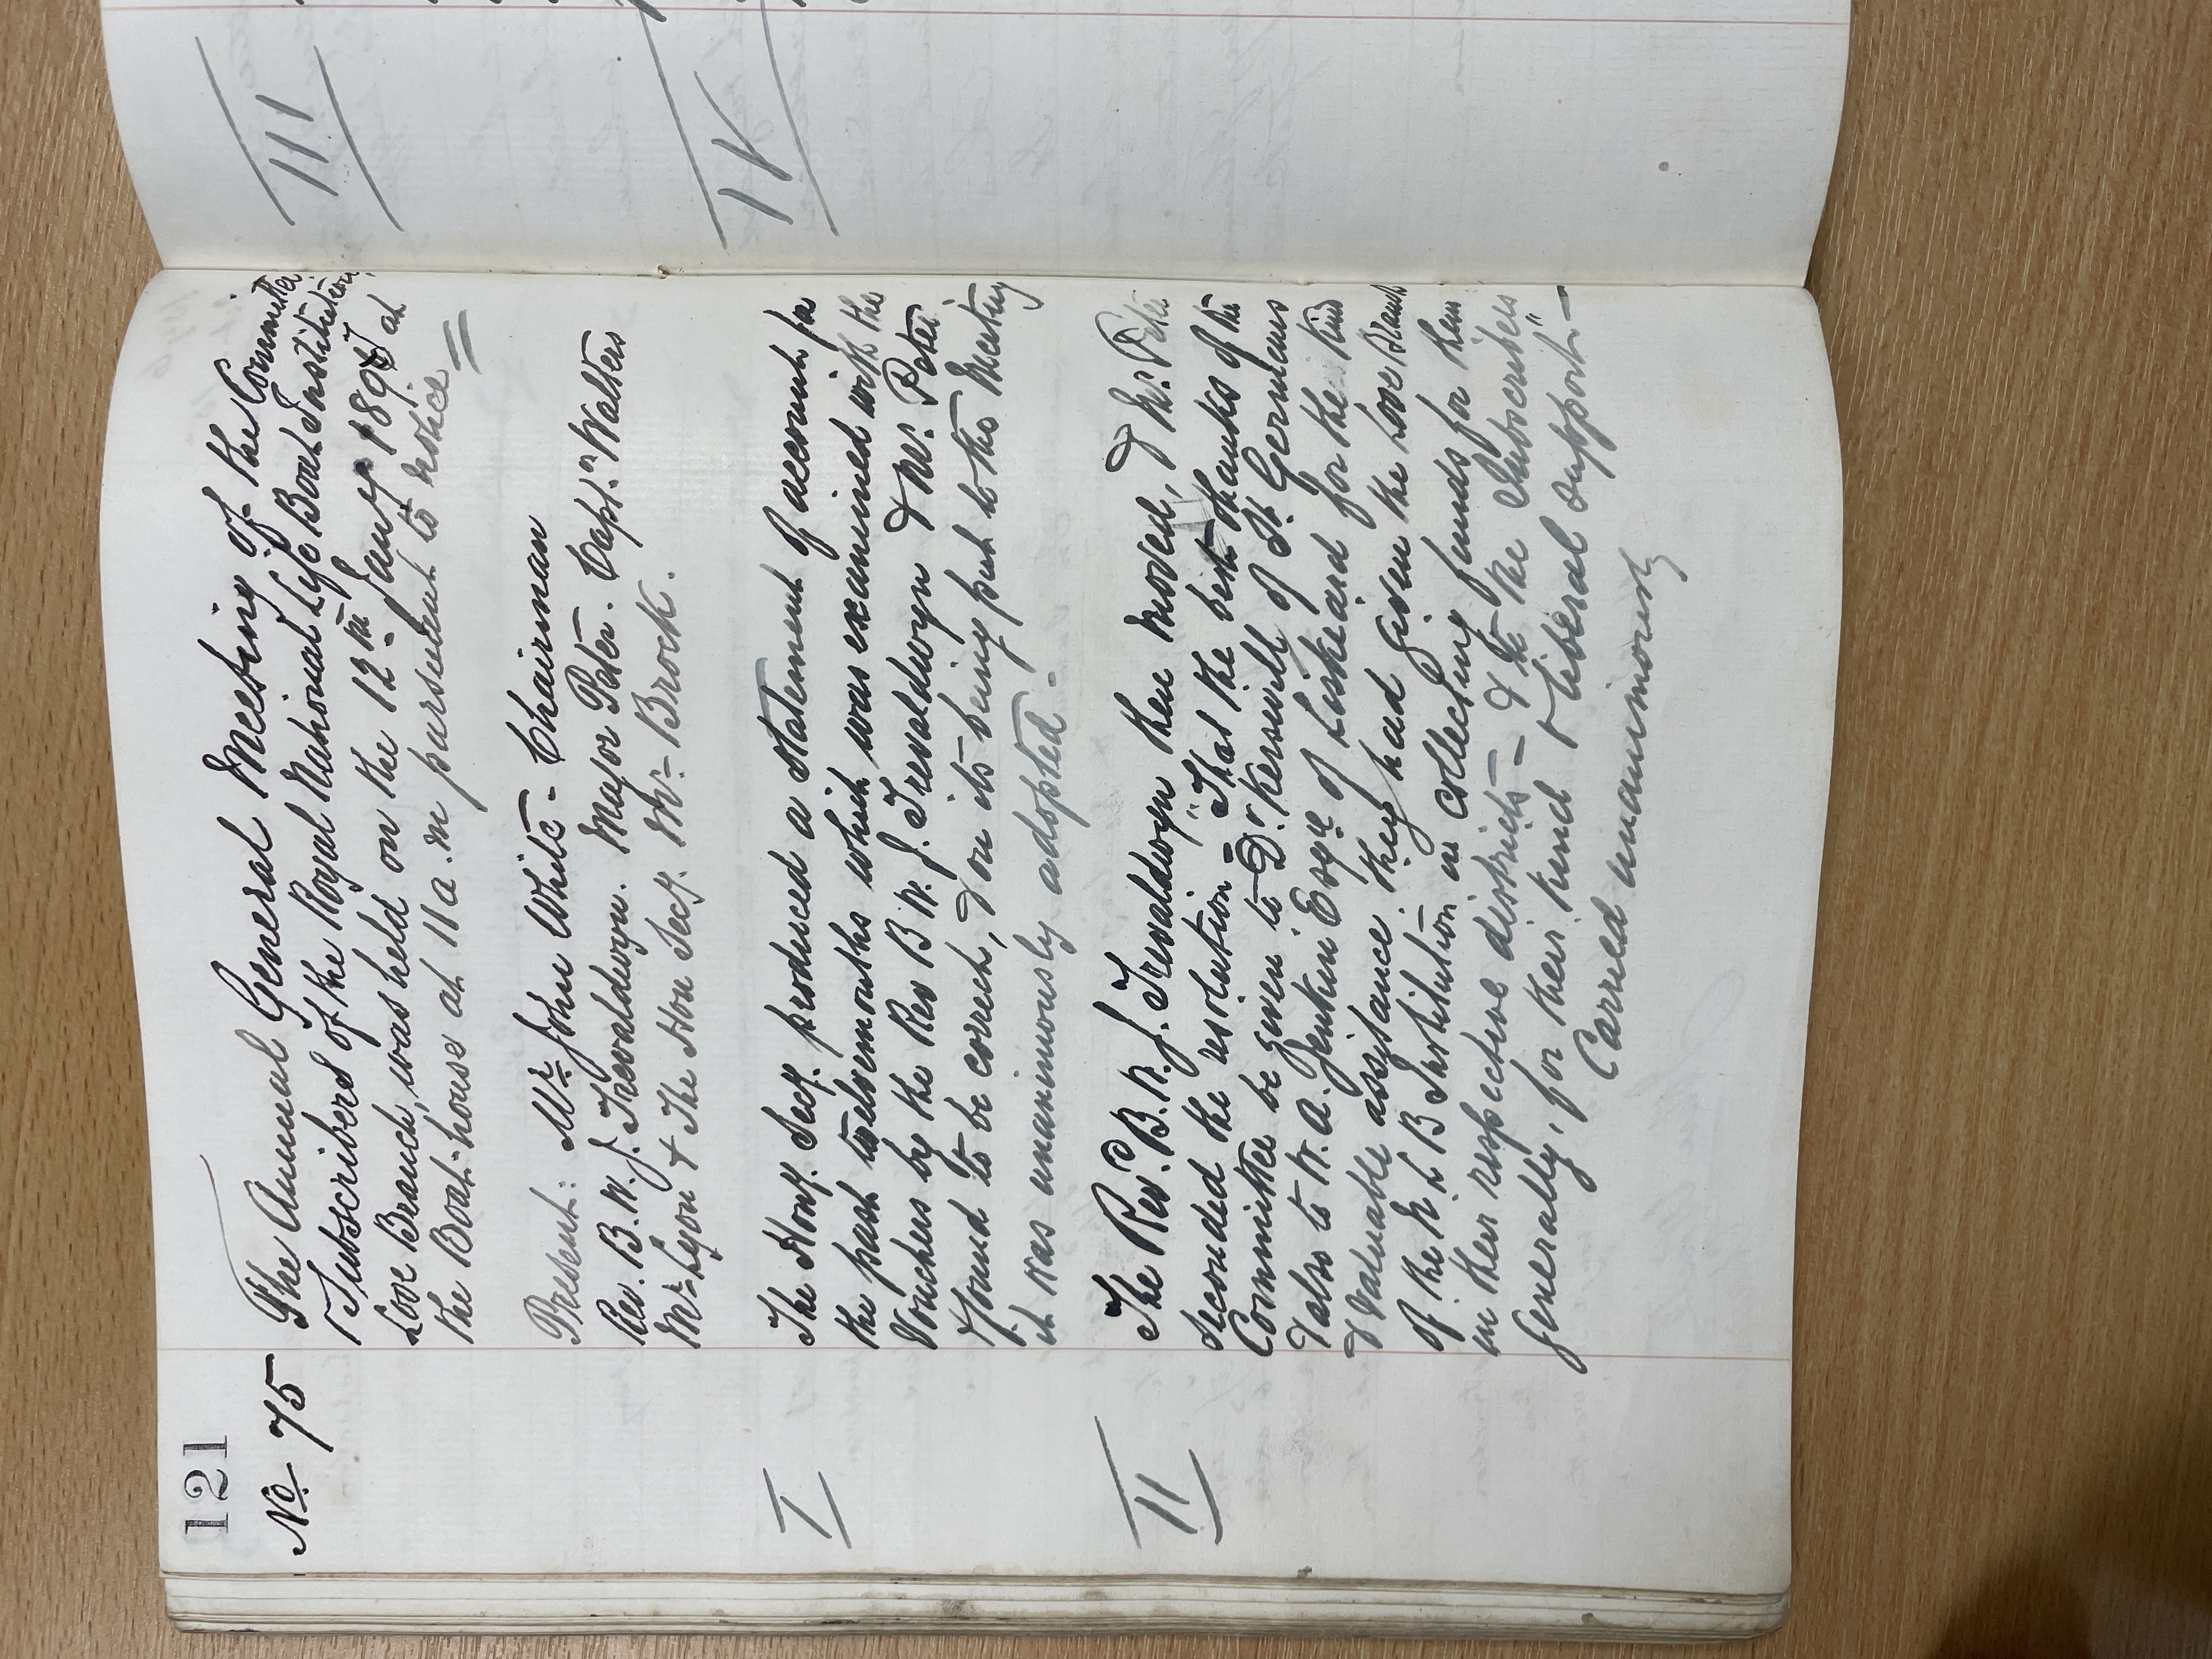 121
No. 75
The Annual General Meeting of the Committee
& Subscribers of the Royal National Life Boat Institution
Looe Branch, was held on the 12th Jany 1897 at
the Boat-house at 11 a.m pursuant to notice
Present: Mr John White - Chairman
Rev. B. W. J. Trevaldwyn. Major Peter. Capt.n Walters
Mr Lyon & The Hon Secy. Mr Brock.
I
The Hony. Secy. produced a statement of accounts for
the past twelve months which was examined with the
Vouchers by the Rev B W. J. Trevaldwyn & Mr. Peter
& found to be correct, & on its being put to the Meeting
it was unanimously adopted -
II
The Rev.d B. W. J. Trevaldwyn then moved, & Mr. Peter
seconded the resolution = "That the best thanks of the
Committee be given to Dr. Kerswill of St. Germans
& also to W. A. Jenkin Esqre of Liskeard for the kind
& valuable assistance they had given the Looe Branch
of the N L B Institution in collecting funds for them
in their respective districts - & to the Subscribers
generally, for their kind & liberal support" -
Carried unanimously
III
IV